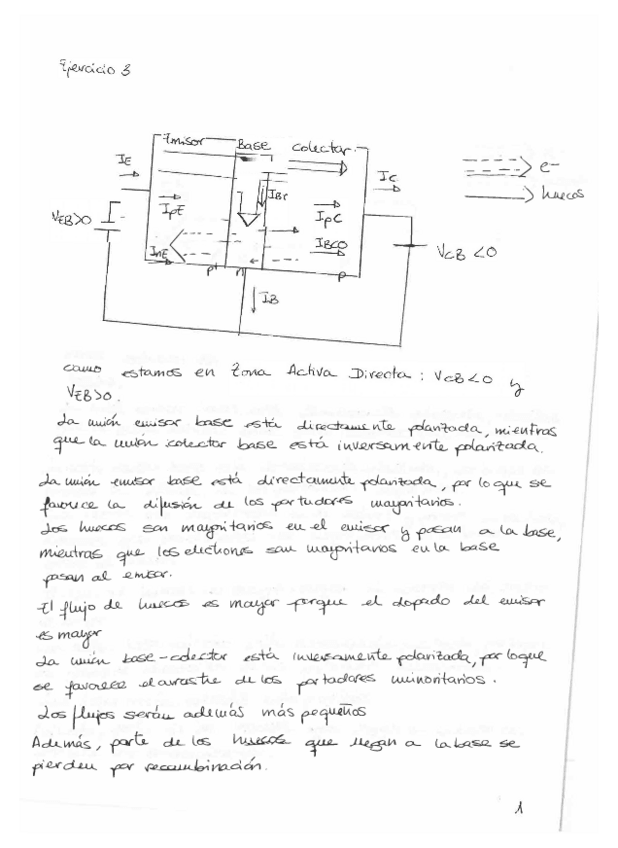 Ejercicio 3
Emisor
Base
Colector
IE
IC
e-
huecos
IBr
IpE
IpC
VEB>0
InE
IBCO
VCB <0
p+
n
p
IB
como estamos en Zona Activa Directa : VCB<0 y
VEB>0.
La unión emisor base está directamente polarizada, mientras
que la unión colector base está inversamente polarizada.
La unión emisor base está directamente polarizada, por lo que se
favorece la difusión de los portadores mayoritarios.
Los huecos son mayoritarios en el emisor y pasan a la base,
mientras que los electrones son mayoritarios en la base
pasan al emisor.
El flujo de huecos es mayor porque el dopado del emisor
es mayor
La unión base-colector está inversamente polarizada, por loque
se favorece el arrastre de los portadores minoritarios.
Los flujos serán además más pequeños
Además, parte de los huecos que llegan a la base se
pierden por recombinación.
1